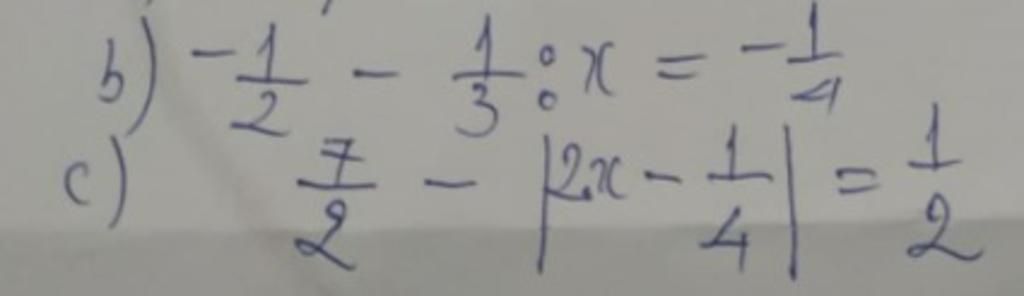 b) -1/2 - 1/3 : x = -1/4
c) 7/2 - |2x - 1/4| = 1/2